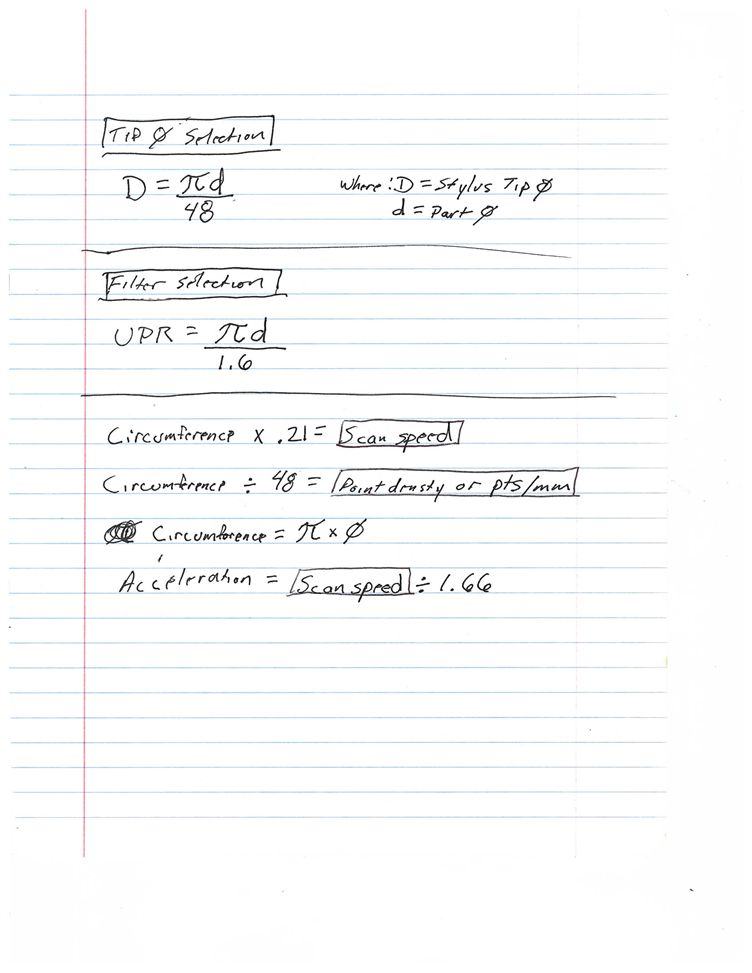 TIP Ø Selection
D = πd
48
where: D = Stylus Tip Ø
d = Part Ø
Filter selection
UPR = πd
1.6
Circumference x .21 = Scan speed
Circumference ÷ 48 = Point density or pts/mm
Circumference = π x Ø
Acceleration = Scan speed ÷ 1.66